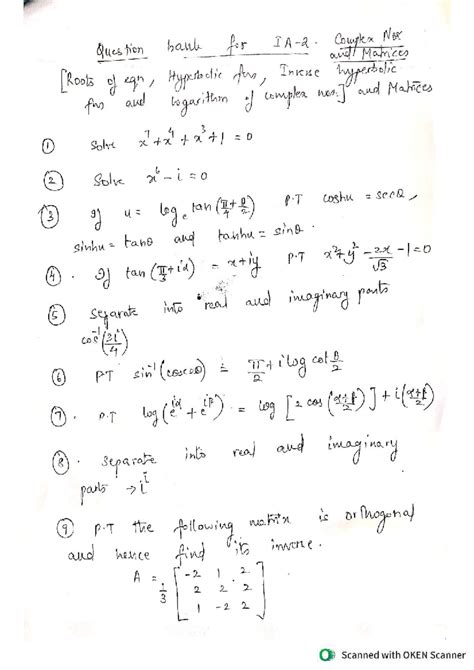 Question bank for IA-2. Complex Nos and Matrices
[Roots of eqn, Hyperbolic fns, Inverse hyperbolic
fns and logarithm of complex nos.] and Matrices
① Solve x⁷+x⁴+x³+1=0
② Solve x⁶-i=0
③ If u = logₑ tan(π/4+θ/2) P.T coshu = secθ,
sinhu = tanθ and tanhu = sinθ.
④. If tan(π/3+iα) = x+iy P.T x²+y²-2x/√3-1=0
⑤ Separate into real and imaginary parts
cos⁻¹(3i/4)
⑥ PT sin⁻¹(cosecθ) = π/2+i log cot θ/2
⑦. P.T log(e^iα+e^iβ) = log[2cos(α+β/2)]+i(α+β/2)
⑧. Separate into real and imaginary
parts → i^i
⑨ P.T the following matrix is orthogonal
and hence find its inverse.
A = 1/3 [-2 1 2
2 2 2
1 -2 2]
Scanned with OKEN Scanner